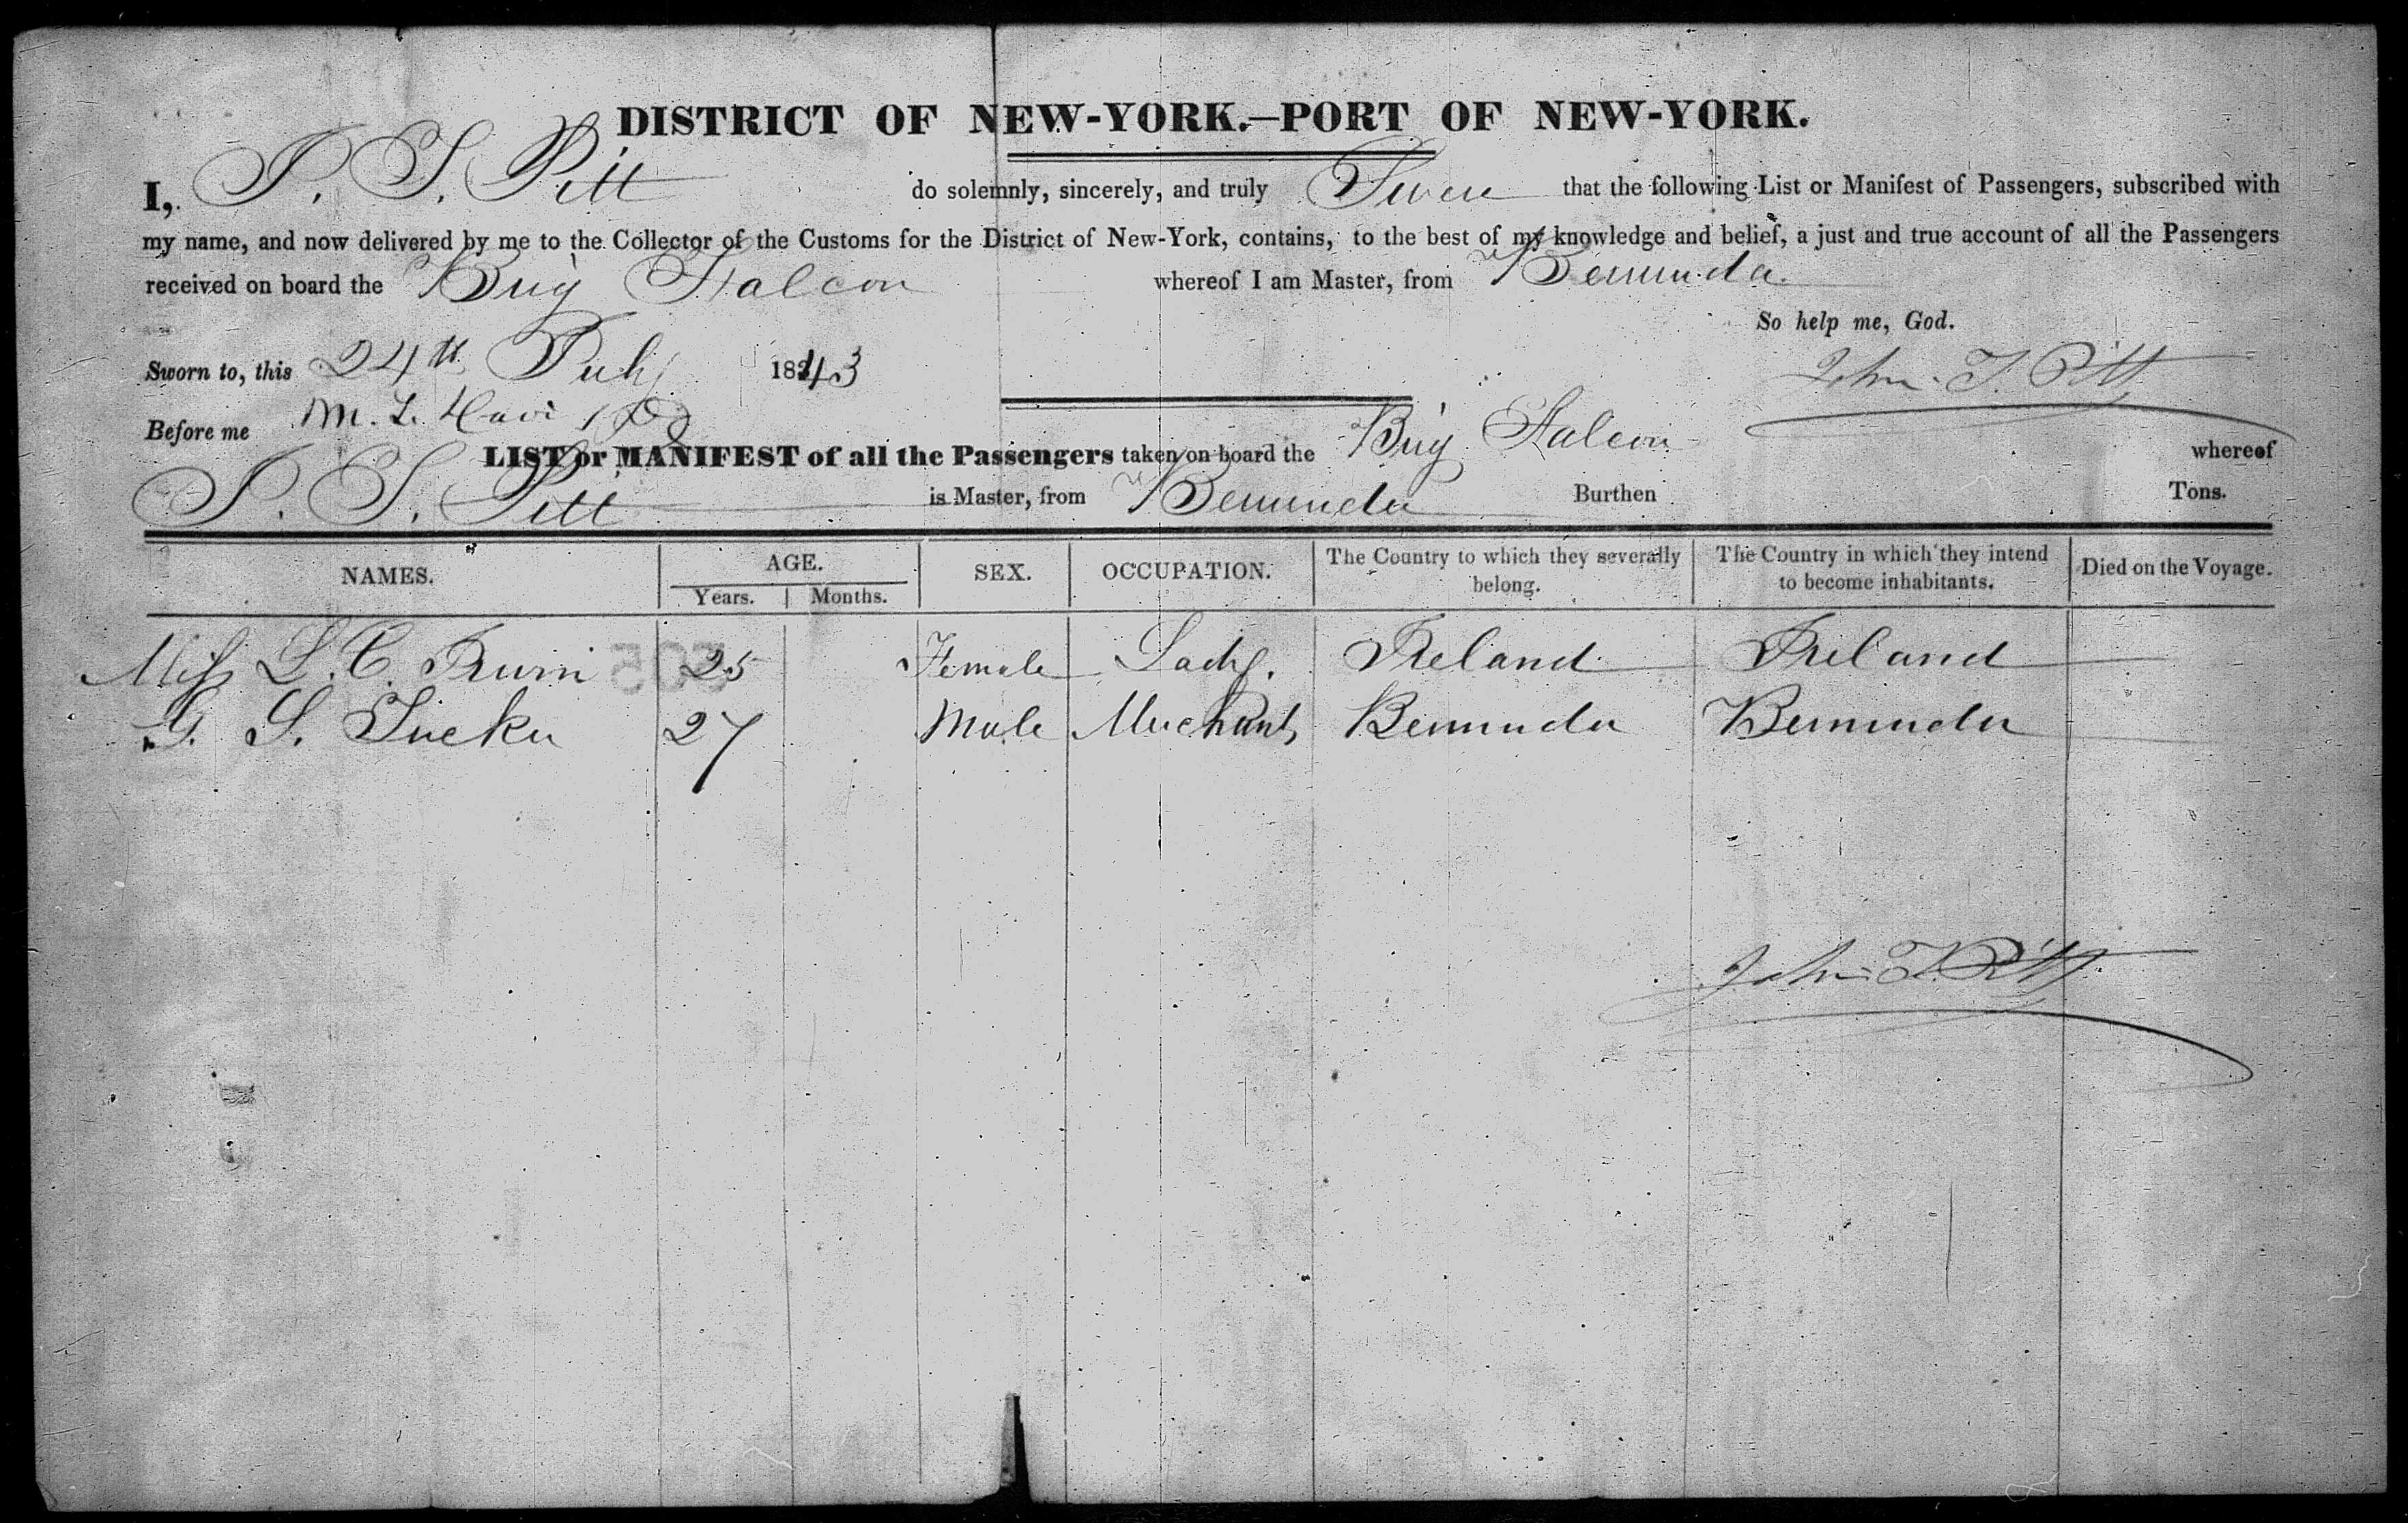 DISTRICT OF NEW-YORK.—PORT OF NEW-YORK.
I, J. S. Pitt do solemnly, sincerely, and truly Swear that the following List or Manifest of Passengers, subscribed with
my name, and now delivered by me to the Collector of the Customs for the District of New-York, contains, to the best of my knowledge and belief, a just and true account of all the Passengers
received on board the Brig Falcon whereof I am Master, from Bermuda
So help me, God.
Sworn to, this 24th July 1843 John S. Pitt
Before me M. L. Davis
LIST or MANIFEST of all the Passengers taken on board the Brig Falcon whereof
J. S. Pitt is Master, from Bermuda Burthen Tons.
NAMES. AGE. SEX. OCCUPATION. The Country to which they severally belong. The Country in which they intend to become inhabitants. Died on the Voyage.
Years. Months.
Miss L. C. Irwin 25 Female Lady. Ireland Ireland
G. S. Tucker 27 Male Merchant Bermuda Bermuda
John S. Pitt